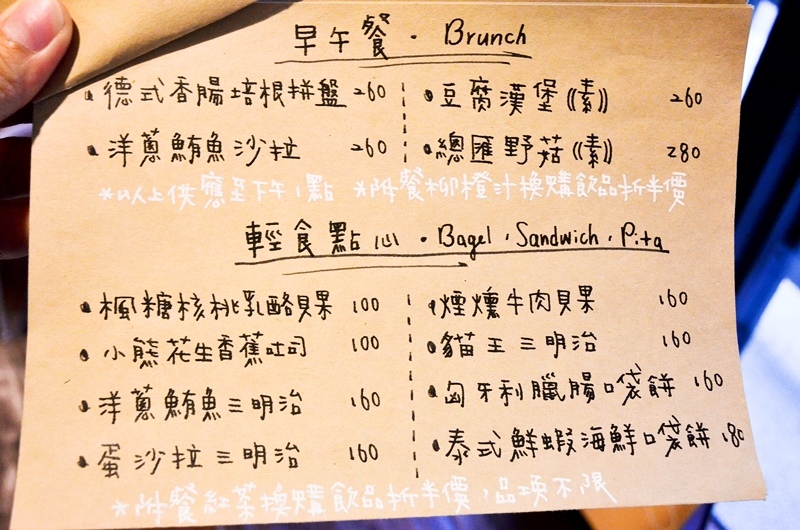 早午餐・Brunch
・德式香腸培根拼盤 260
・豆腐漢堡(素) 260
・洋蔥鮪魚沙拉 260
・總匯野菇(素) 280
*以上供應至下午1點 *附餐柳橙汁換購飲品折半價
輕食點心・Bagel, Sandwich, Pita
・楓糖核桃乳酪貝果 100
・煙燻牛肉貝果 160
・小熊花生香蕉吐司 100
・貓王三明治 160
・洋蔥鮪魚三明治 160
・匈牙利臘腸口袋餅 160
・蛋沙拉三明治 160
・泰式鮮蝦海鮮口袋餅 180
*附餐紅茶換購飲品折半價,品項不限